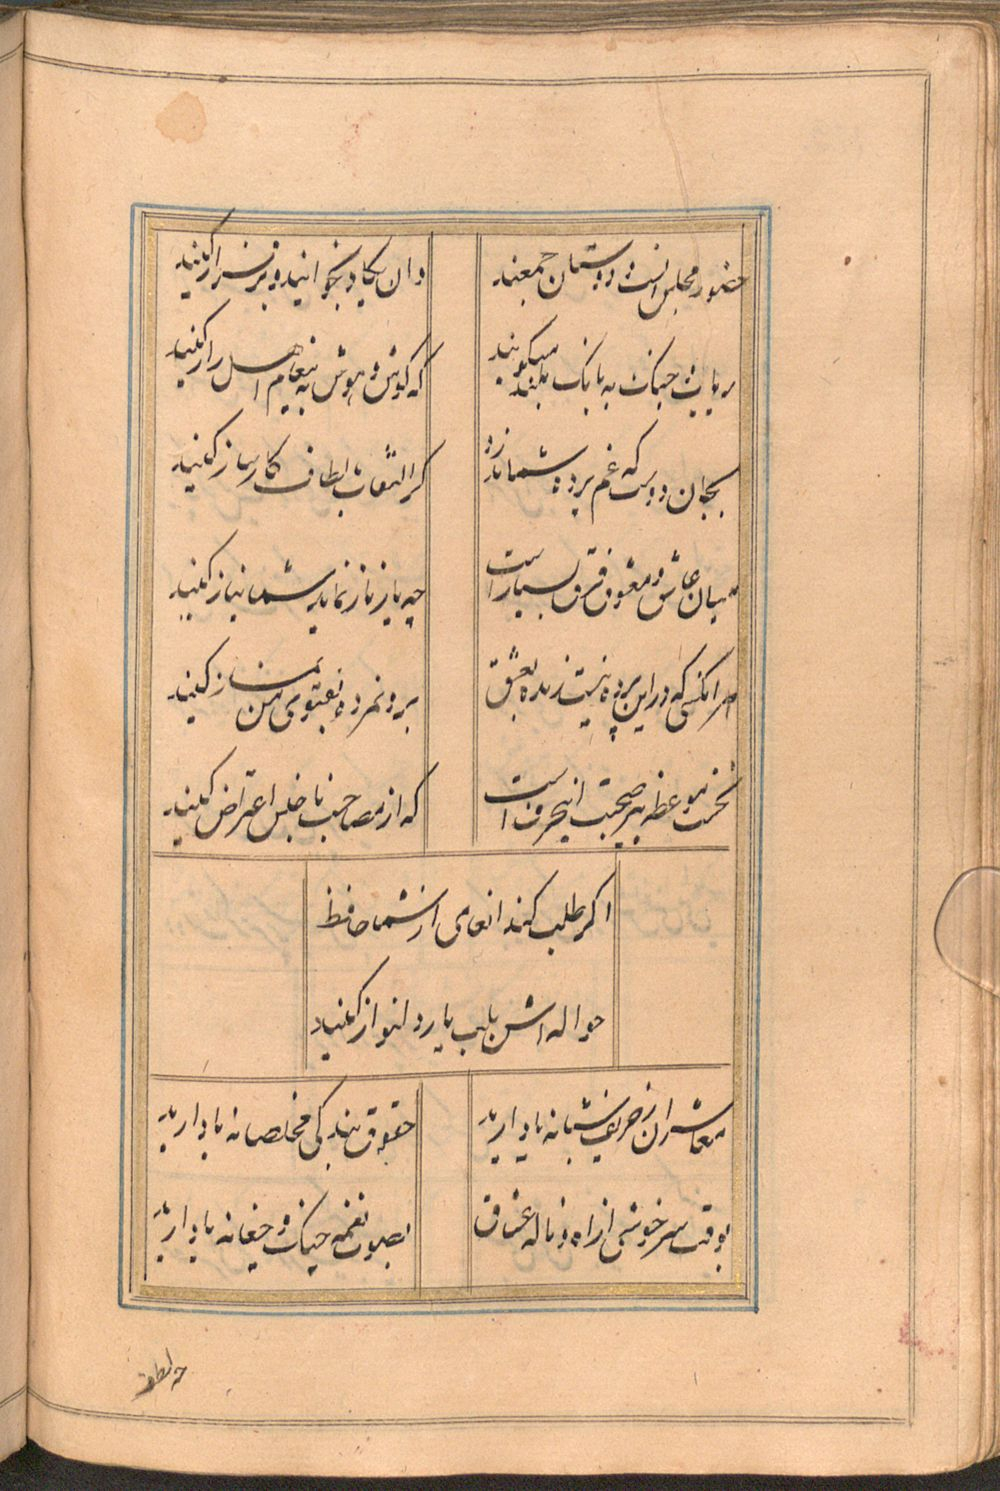 حضور مجلس انست و دوستان جمعند
وان یکاد بخوانید و در فراز کنید
رباب و چنک به بانک بلند میکویند
که کوش و هوش به پیغام اهل راز کنید
بجان دوست که غم پرده شما ندرد
کر التفات بلطاف کارساز کنید
میان عاشق و معشوق فرق بسیار است
چه یار ناز نماید شما نیاز کنید
هر انکسی که در این پرده نیست زنده بعشق
برو نمرده بفتوی من نماز کنید
نخست موعظه پیر صحبت اینحرف است
که از مصاحب ناجنس احتراض کنید
اکر طلب کند انعامی از شما حافظ
حواله اش بلب یار دلنواز کنید
معاشران ز حریف شبانه یاد ارید
حقوق بندکی مخلصانه یاد ارید
بوقت سرخوشی از اه و ناله عشاق
بصوت نغمه چنک و چغانه یاد ارید
چه لطف